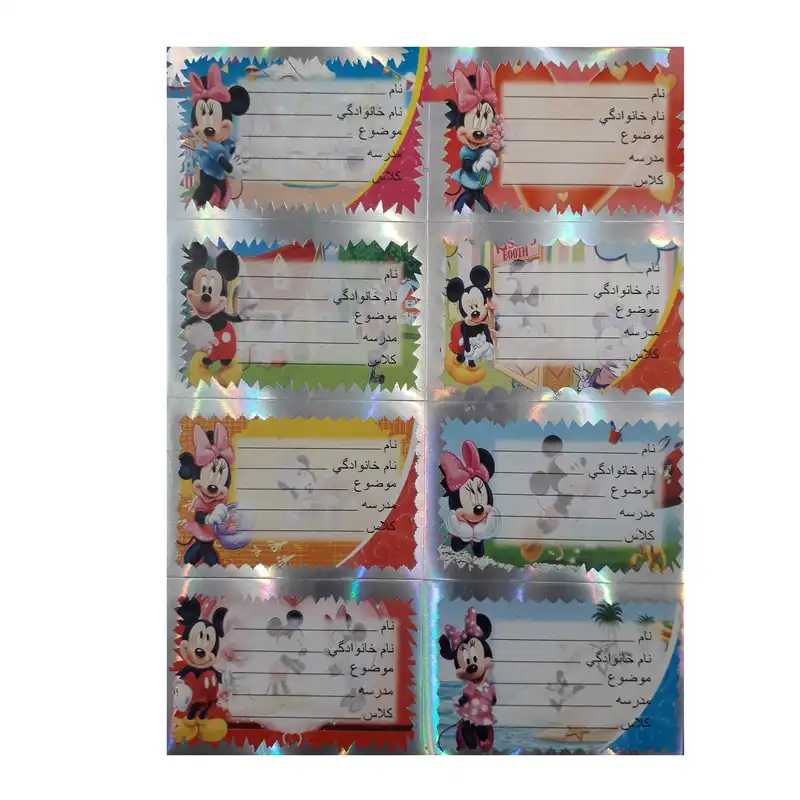 نام
نام خانوادگي
موضوع
مدرسه
کلاس
نام
نام خانوادگي
موضوع
مدرسه
کلاس
BOOTH
نام
نام خانوادگي
موضوع
مدرسه
کلاس
نام
نام خانوادگي
موضوع
مدرسه
کلاس
نام
نام خانوادگي
موضوع
مدرسه
کلاس
نام
نام خانوادگي
موضوع
مدرسه
کلاس
نام
نام خانوادگي
موضوع
مدرسه
کلاس
نام
نام خانوادگي
موضوع
مدرسه
کلاس